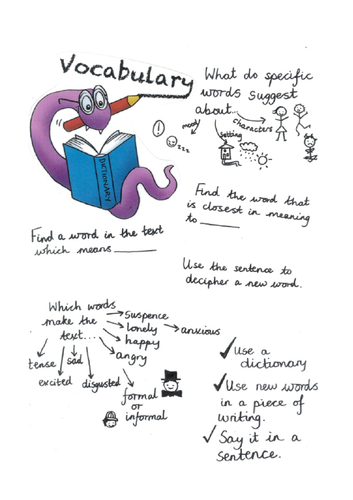 Vocabulary
What do specific
words suggest
about...
characters
mood
setting
!
zzz
DICTIONARY
Find the word that
is closest in meaning
to ______
Find a word in the text
which means ______
Use the sentence to
decipher a new word.
Which words
make the
text...
suspence
lonely
anxious
happy
angry
tense
sad
excited
disgusted
formal
or
informal
✓ Use a
dictionary
✓ Use new words
in a piece of
writing.
✓ Say it in a
sentence.